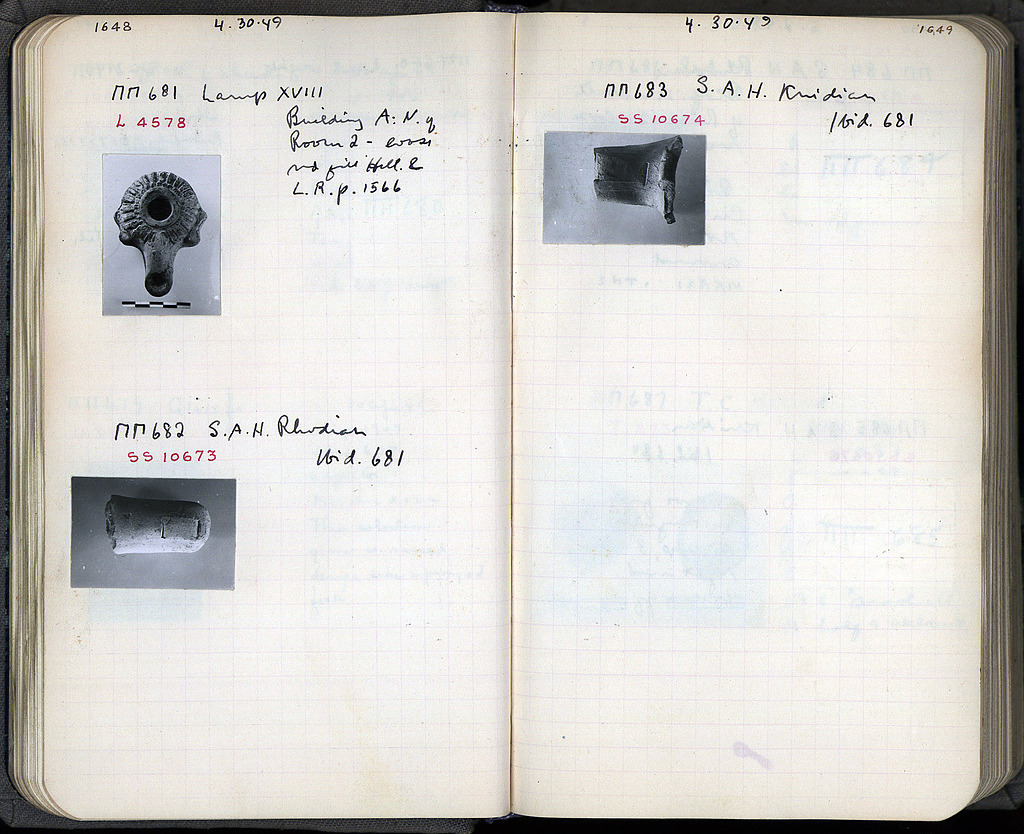 1648
4.30.49
ΠΠ 681 Lamp XVIII
L 4578
Building A: N. of
Room 2 - loose
rd fill Hell. &
L.R. p. 1566
ΠΠ 682 S.A.H. Rhodian
SS 10673
Ibid. 681
4.30.49
1649
ΠΠ 683 S.A.H. Knidian
SS 10674
Ibid. 681